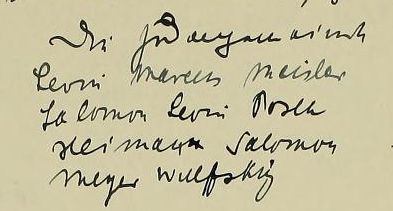 Die Judengemeinde
Levin Marcus Meisler
Salomon Levin Posen
Heimann Salomon
Meyer Wulffsky